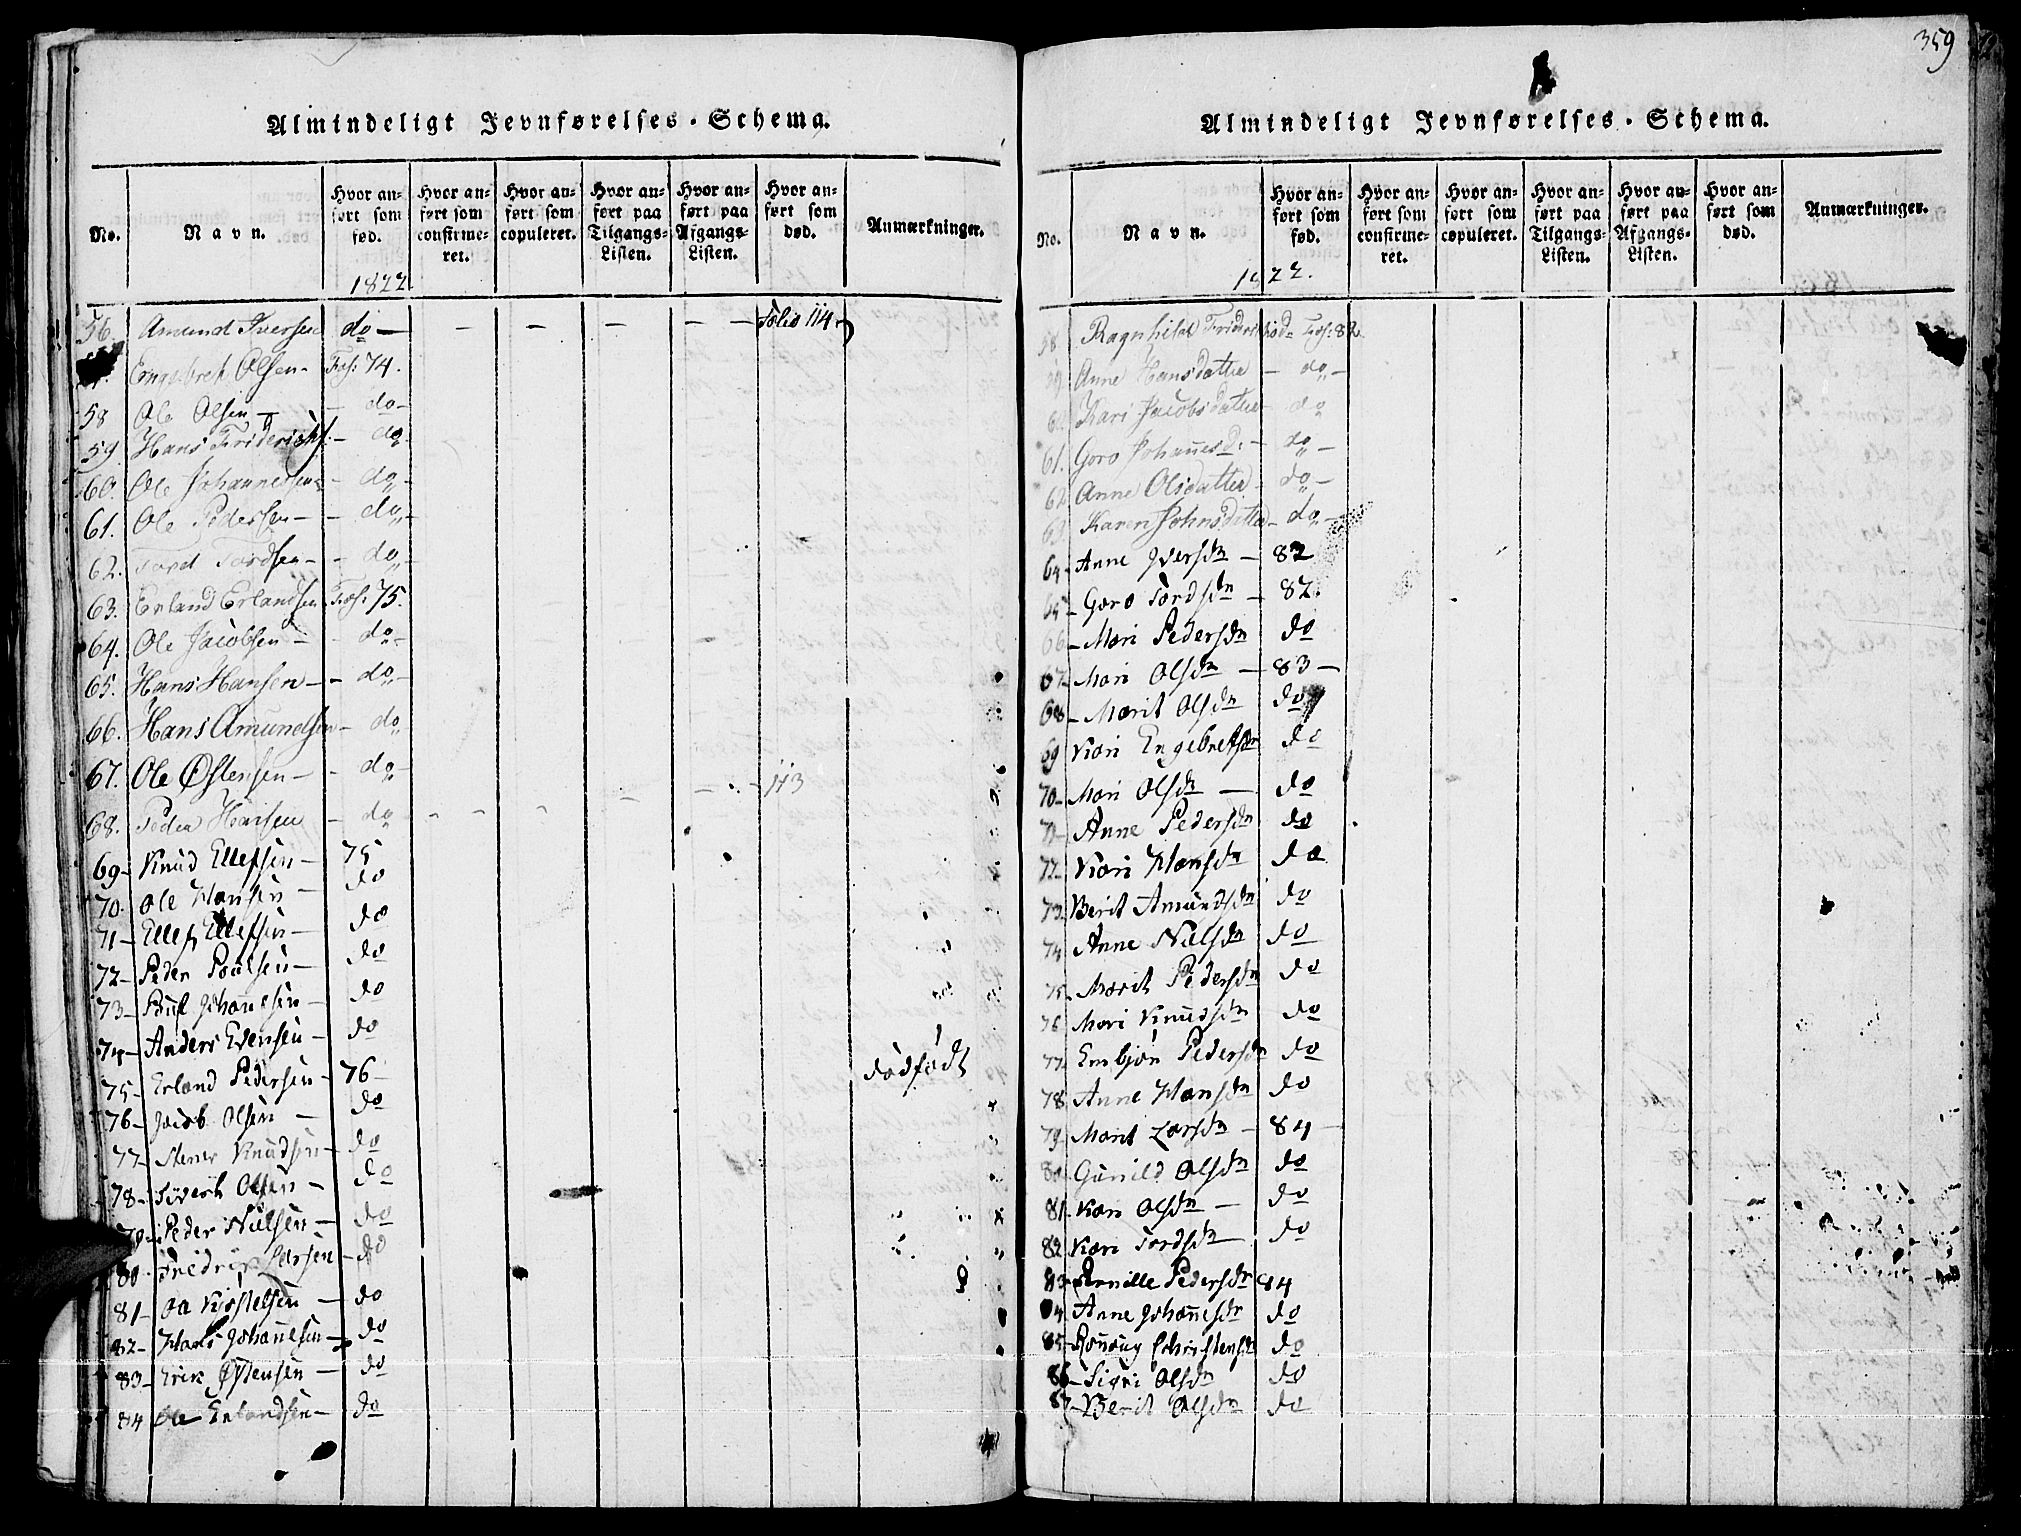 359
Almindeligt Jevnførelses-Schema.
No. Navn. Hvor anført som fød. Hvor anført som confirmeret. Hvor anført som copuleret. Hvor anført paa Tilgangs-Listen. Hvor anført paa Afgangs-Listen. Hvor anført som død. Anmærkninger.
1822
56. Amund Iversen do — — — — — — Folio 114
Engebret Olsen - Fol: 74.
58 Ole Olsen — - do -
59. Hans Friderichs: - do
60. Ole Johannesen - do -
61. Ole Pedersen - - do -
62. Tord Tordsen - - do -
63. Erland Erlandsen Fol: 75.
64. Ole Jacobsen - - do -
65. Hans Hansen - - do -
66. Hans Amundsen - do
67. Ole Østensen - - do - 113
68. Peder Hansen - do
69 - Knud Ellefsen - 75
70. Ole Hansen - do
71 - Ellef Ellefsen - do
72 - Peder Poulsen - do
73 - Poul Johanesen - do
74 - Anders Evensen - do
75 - Erland Pedersen - 76 - dødfødt
76 - Jacob Olsen - do
77 - Stener Knudsen - do
78 - Sivert Olsen - do
79 - Peder Nielsen - do
80 - Fredrik Larsen - do
81 - Ole Kjøstelsen - do
82 - Hans Johanesen - do
83 - Erik Østensen - do
84 Ole Erlandsen - do
Almindeligt Jevnførelses-Schema.
No. Navn. Hvor anført som fød. Hvor anført som confirmeret. Hvor anført som copuleret. Hvor anført paa Tilgangs-Listen. Hvor anført paa Afgangs-Listen. Hvor anført som død. Anmærkninger.
1822.
58. Ragnhild Friderichsd- Fol: 82
59. Anne Hansdatter - do -
Kari Jacobsdatter - do
61. Goro Johannesd: - do -
62. Anne Olsdatter - do -
63. Karen Johnsdatter - do -
64 - Anne Iversdn - 82
65 - Goro Tordsdn - 82.
66 - Mari Pedersdn do
67 - Mari Olsdn - 83 -
68 - Marit Olsdn do
69 Kari Engebretsdn do
70 - Mari Olsdn - do
71 - Anne Pedersdn do
72 - Kari Hansdn do
73. Berit Amundsdn do
74 Anne Nielsdn do
75. Marit Pedersdn do
76 Mari Knudsdn do
77. Embjør Pedersdn do
78. Anne Hansdn do
79. Marit Larsdn - 84 -
80 - Gunild Olsdn do
81. Kari Olsdn - do
82 Kari Tordsdn do
83 - Pernille Pedersdr 84
84 Anne Johanesdr do
85 - Rønnaug Christensdr do
86 - Sigri Olsdn do
87 - Berit Olsdn do